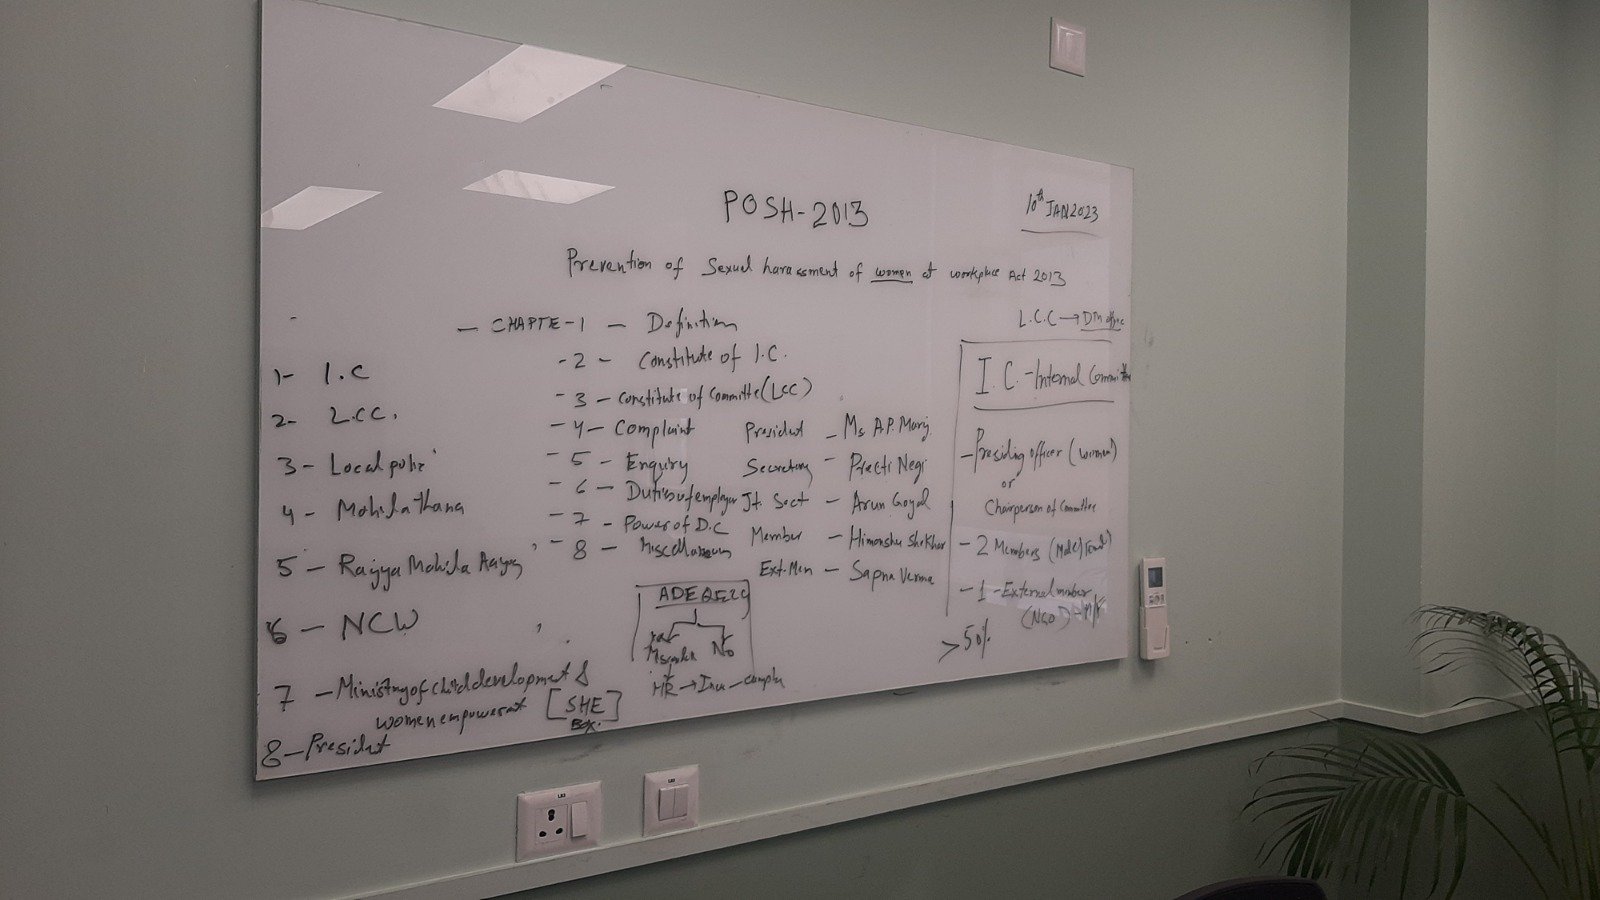 POSH-2013
10th JAN 2023
Prevention of Sexual harassment of women at workplace Act 2013
L.C.C → office
- CHAPTE-1 - Definition
- 2 - Constitute of I.C.
- 3 - constitute of committe (LCC)
- 4 - Complaint
- 5 - Enquiry
- 6 - Duties of employer
- 7 - Power of D.C
- 8 - Miscellaneous
1- I.C
2- L.CC.
3 - Local police
4 - Mahila thana
5 - Rajya Mahila Aayog
6 - NCW
7 - Ministry of child development &
women empowerment [SHE
Box.]
8 - President
President - Ms A.P.
Secretary - Preeti Negi
Jt. Sect - Arun Goyal
Member - Himanshu Shekhar
Ext. Mem - Sapna Verma
I.C. - Internal Committee
- Presiding officer (women)
or
Chairperson of Committee
- 2 Members (Male/Female)
- 1 - External member
(NGO) - M/F
> 50%
No
HR →